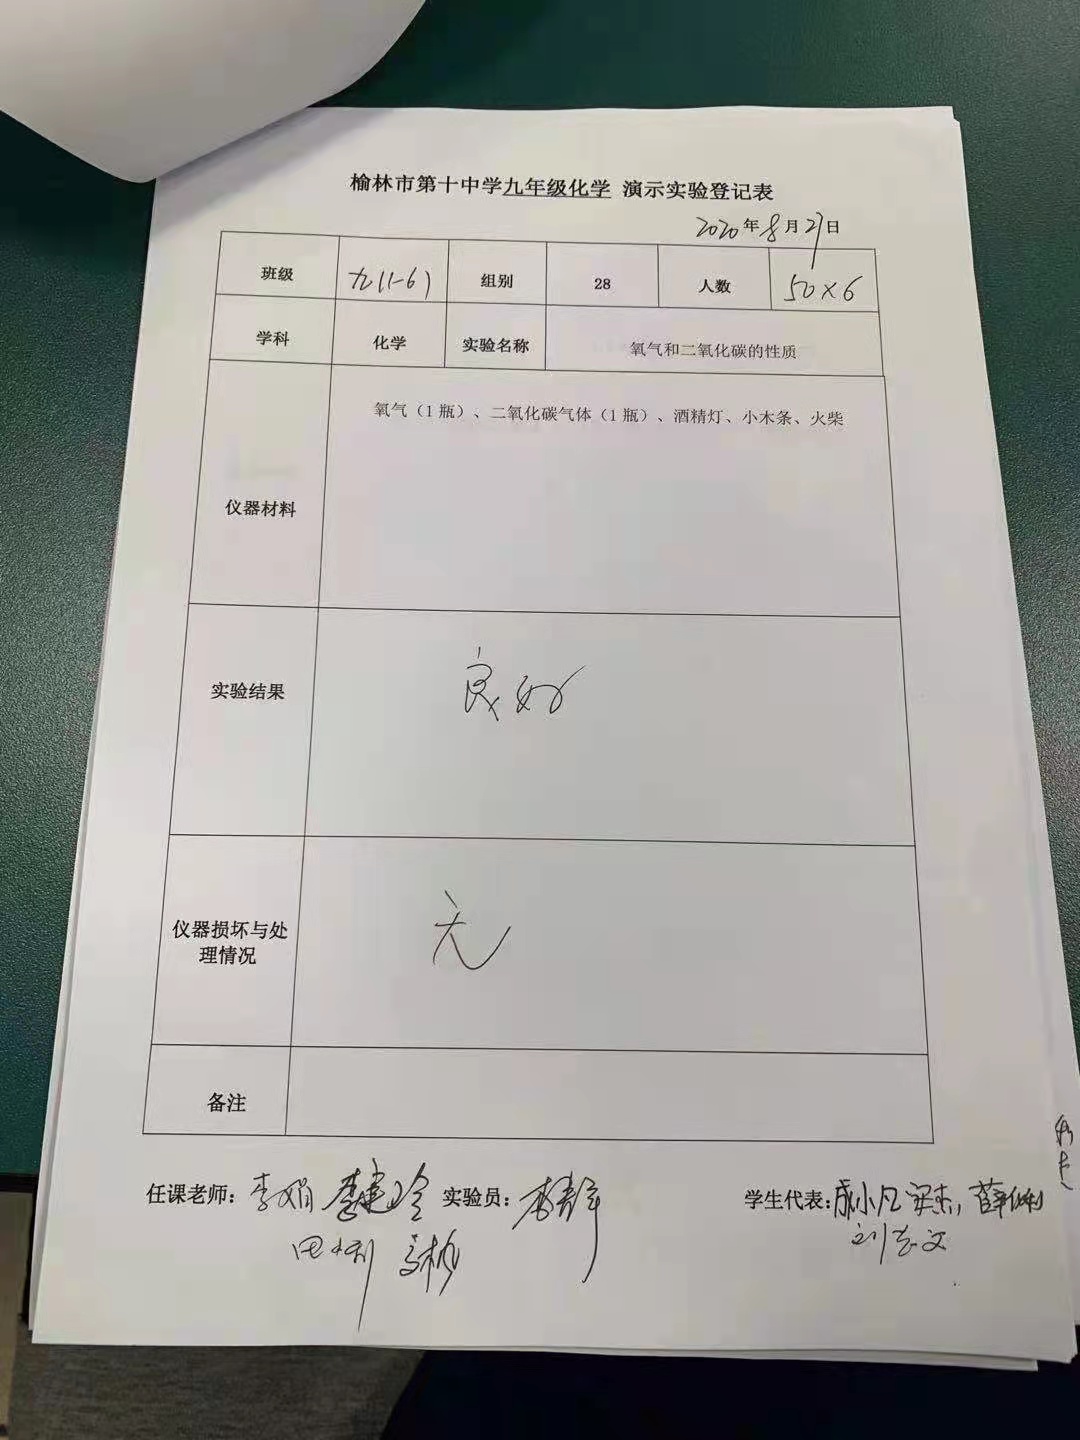 榆林市第十中学九年级化学 演示实验登记表
2020年8月27日
班级 九(1-6) 组别 28 人数 50×6
学科 化学 实验名称 氧气和二氧化碳的性质
仪器材料 氧气（1瓶）、二氧化碳气体（1瓶）、酒精灯、小木条、火柴
实验结果 良好
仪器损坏与处
理情况 无
备注
任课老师：李娟 李建玲 实验员： 学生代表：
刘志文